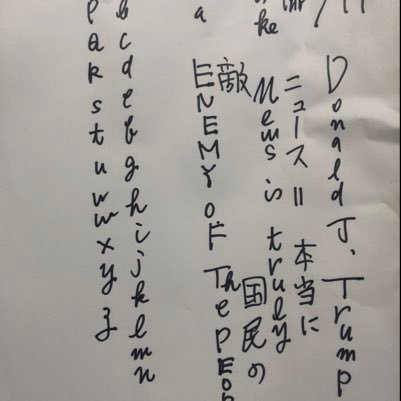 Donald J. Trump
ニュース = 本当に
News is truly
敵 国民の
ENEMY OF The PEOP
a
b c d e f g h i j k l m n
p q r s t u v w x y z